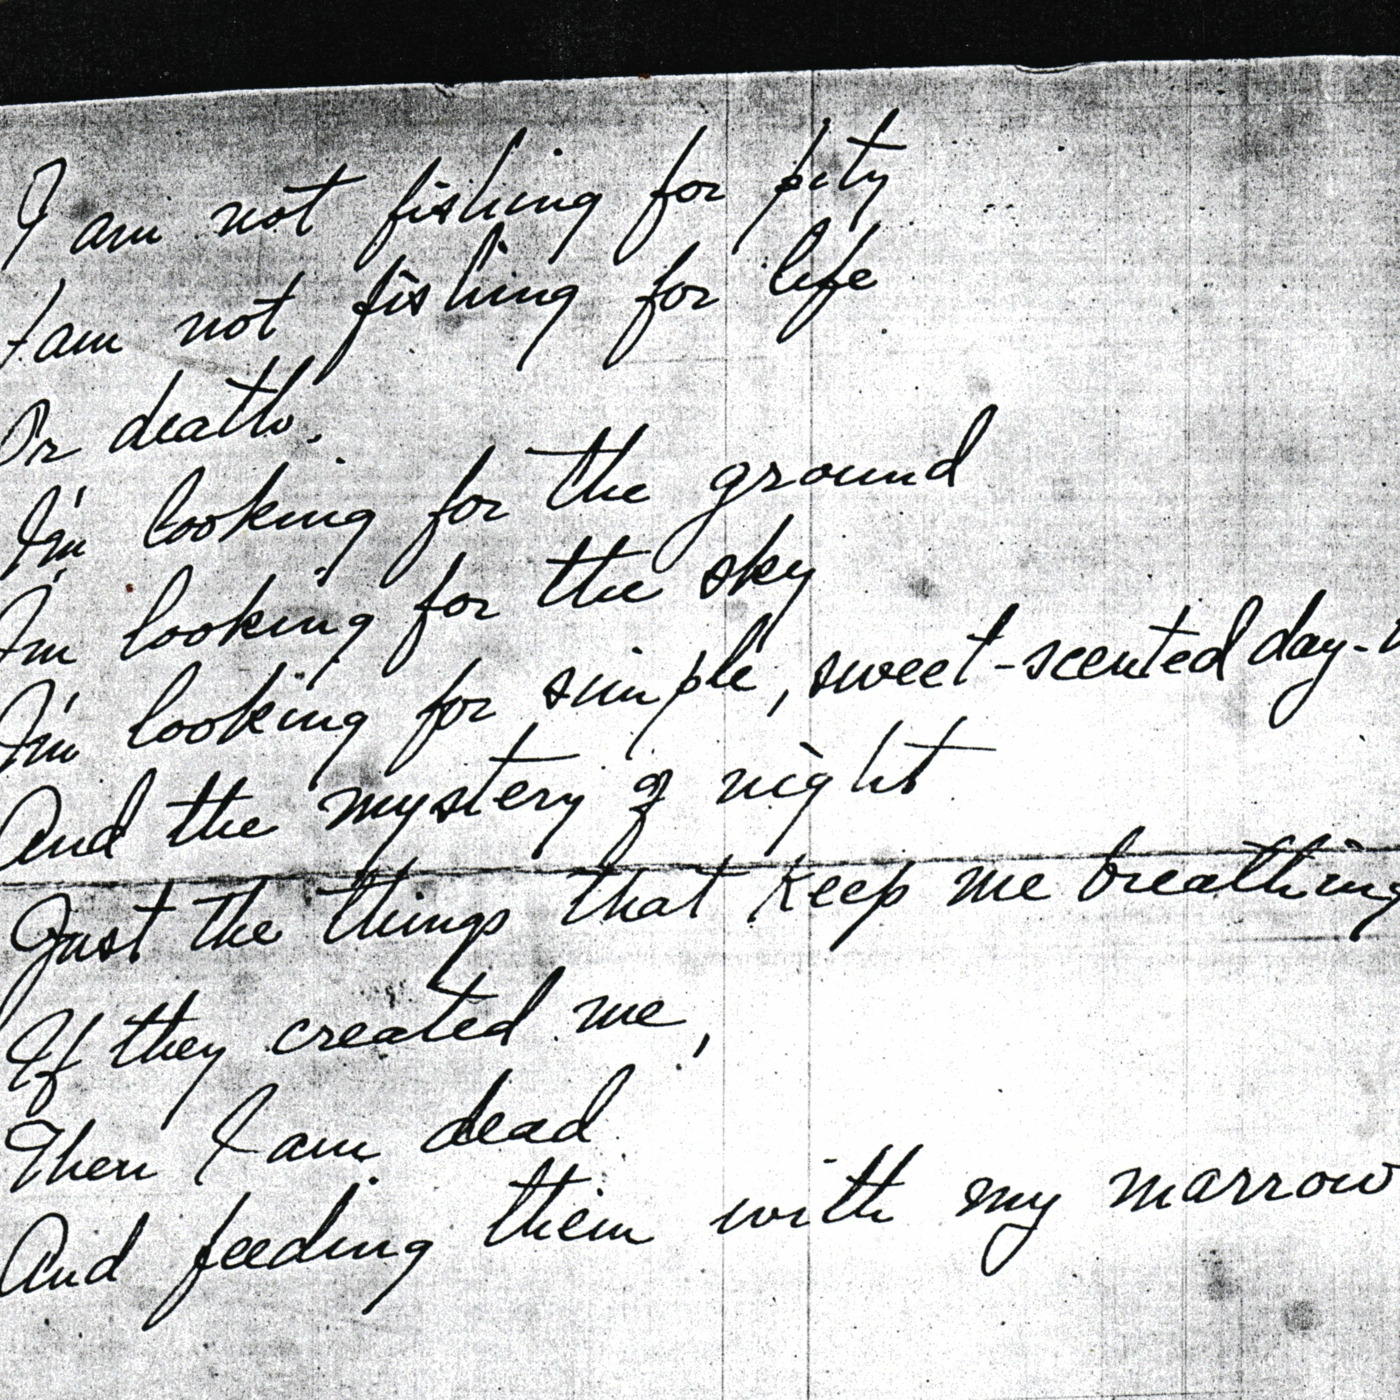 I am not fishing for pity
I am not fishing for life
Or death.
I'm looking for the ground
I'm looking for the sky
I'm looking for simple, sweet-scented day-
And the mystery of night
Just the things that keep me breathing
If they created me,
Then I am dead
And feeding them with my marrow